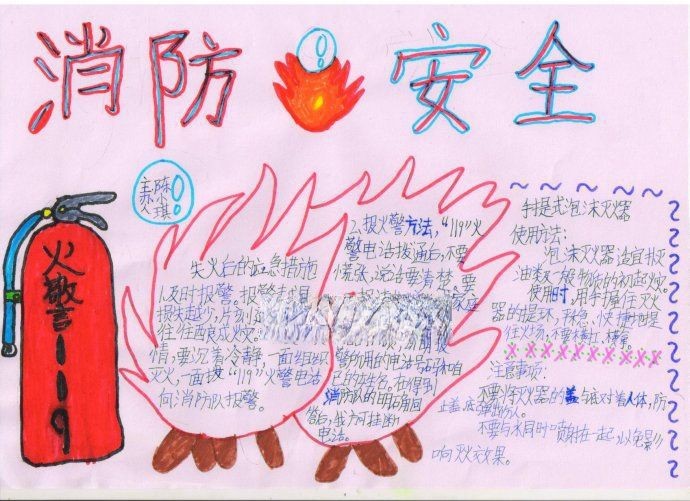 消防安全
陈小琪
主办人
火警119
失火后的应急措施
1.及时报警。报警
损失越少,片刻
往往酿成火灾。
情,要沉着冷静,一面组织
灭火,一面拨“119”火警电话
向消防队报警。
2.报火警方法,“119”火
警电话拨通后,不要
慌张,说话要清楚。要
警所用的电话号码和自
己的姓名。在得到
消防队的明确回
答后,我方可挂断
电话。
手提式泡沫灭火器
使用方法:
泡沫灭火器适宜扑灭
油类及一般物质的初起火灾。
使用时,用手握住灭火
器的提环,平稳、快捷地提
往火场,不要横扛、横拿。
注意事项:
不要将灭火器的盖与底对着人体,防
止盖底弹出伤人。
不要与水同时喷射在一起,以免影
响灭火效果。